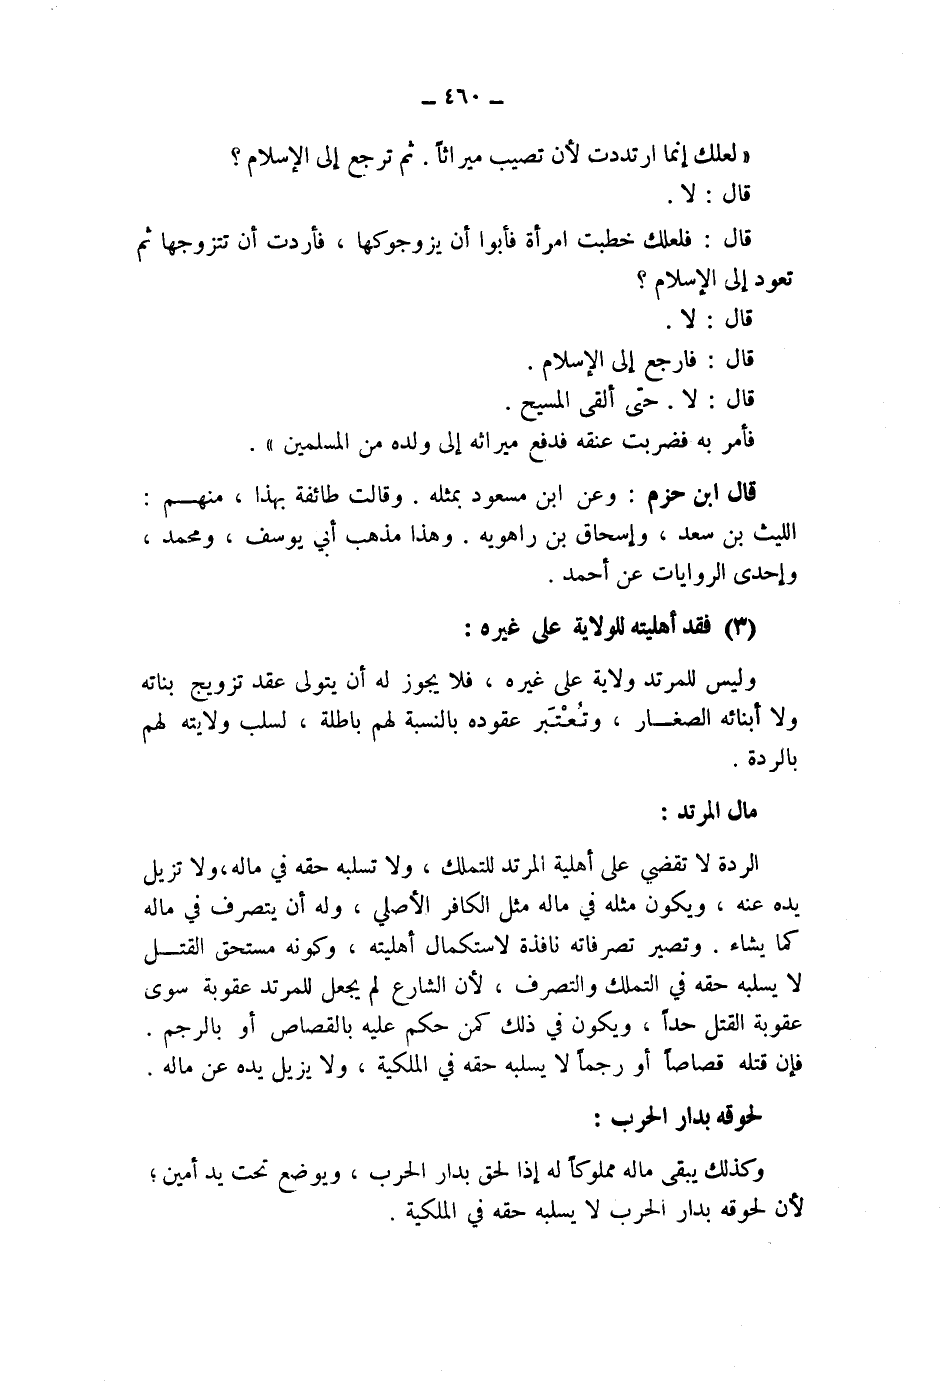 ـ ٤٦٠ ـ
« لعلك إنما ارتددت لأن تصيب ميراثاً . ثم ترجع إلى الإسلام ؟
قال : لا .
قال : فلعلك خطبت امرأة فأبوا أن يزوجوكها ، فأردت أن تتزوجها ثم
تعود إلى الإسلام ؟
قال : لا .
قال : فارجع إلى الإسلام .
قال : لا . حتّى ألقى المسيح .
فأمر به فضربت عنقه فدفع ميراثه إلى ولده من المسلمين » .
قال ابن حزم : وعن ابن مسعود بمثله . وقالت طائفة بهذا ، منهــم :
الليث بن سعد ، وإسحاق بن راهويه . وهذا مذهب أبي يوسف ، ومحمد ،
وإحدى الروايات عن أحمد .
(٣) فقد أهليته للولاية على غيره :
وليس للمرتد ولاية على غيره ، فلا يجوز له أن يتولى عقد تزويج بناته
ولا أبنائه الصغــار ، وتُعْتَبر عقوده بالنسبة لهم باطلة ، لسلب ولايته لهم
بالردة .
مال المرتد :
الردة لا تقضي على أهلية المرتد للتملك ، ولا تسلبه حقه في ماله،ولا تزيل
يده عنه ، ويكون مثله في ماله مثل الكافر الأصلي ، وله أن يتصرف في ماله
كما يشاء . وتصير تصرفاته نافذة لاستكمال أهليته ، وكونه مستحق القتــل
لا يسلبه حقه في التملك والتصرف ، لأن الشارع لم يجعل للمرتد عقوبة سوى
عقوبة القتل حداً ، ويكون في ذلك كمن حكم عليه بالقصاص أو بالرجم .
فإن قتله قصاصاً أو رجماً لا يسلبه حقه في الملكية ، ولا يزيل يده عن ماله .
لحوقه بدار الحرب :
وكذلك يبقى ماله مملوكاً له إذا لحق بدار الحرب ، ويوضع تحت يد أمين ؛
لأن لحوقه بدار الحرب لا يسلبه حقه في الملكية .